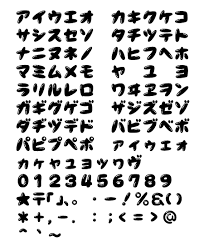 アイウエオ カキクケコ
サシスセソ タチツテト
ナニヌネノ ハヒフヘホ
マミムメモ ヤ ユ ヨ
ラリルレロ ワヰヱヲン
ガギグゲゴ ザジズゼゾ
ダヂヅデド バビブベボ
パピプペポ ァィゥェォ
カケャュョッヮヴ
0123456789
★〒「」、。:-!%&()
*+,-. :;<=>@
^`~